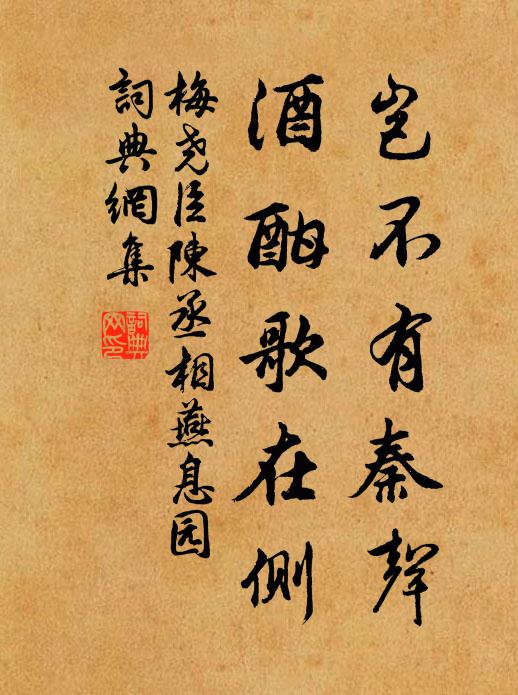 岂不有秦聲
酒酣歌在側
梅尧臣陳丞相燕息园
詞典網集
詞典網印